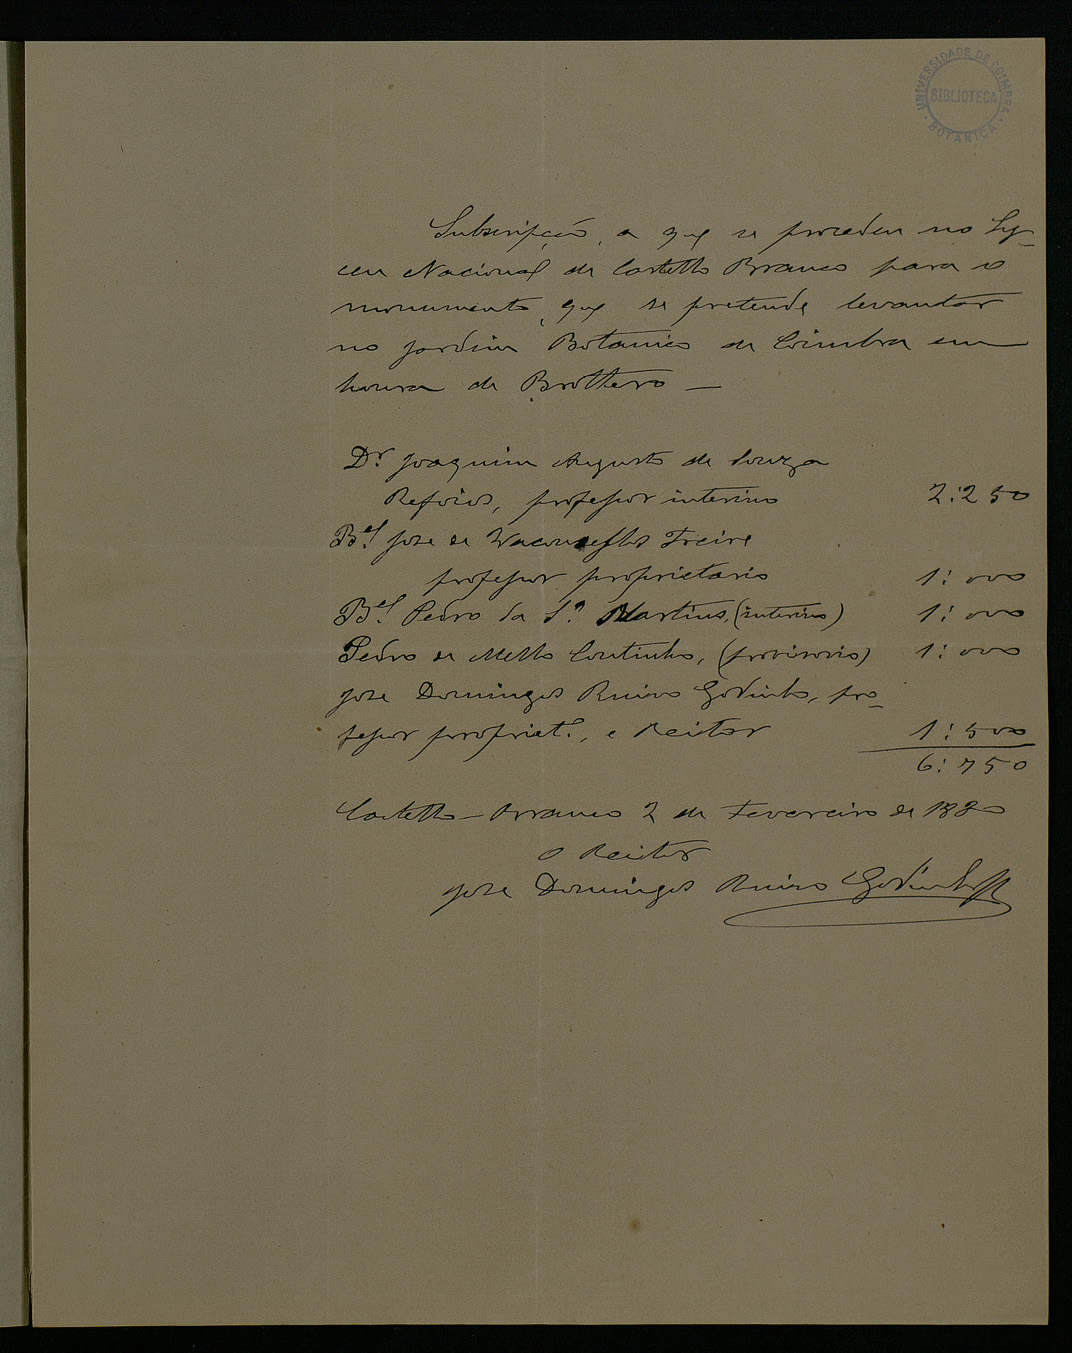 UNIVERSIDADE DE COIMBRA
BIBLIOTECA
BOTANICA
Subscripção, a que se procedeu no Ly-
ceu Nacional de Castello Branco para o
monumento, que se pretende levantar
no jardim Botanico de Coimbra em
honra de Brottero —
Dr. Joaquim Augusto de Souza
Refoios, professor interino 2:250
Bel. Jose de Vasconcellos Freire
professor proprietario 1:000
Bel. Pedro da Sa. Martins, (interino) 1:000
Pedro de Mello Coutinho, (provisorio) 1:000
Jose Domingos Ruivo Godinho, pro-
fessor propriet.o, e Reitor 1:500
6:750
Castello-Branco 2 de Fevereiro de 1880
O Reitor
Jose Domingos Ruivo Godinho